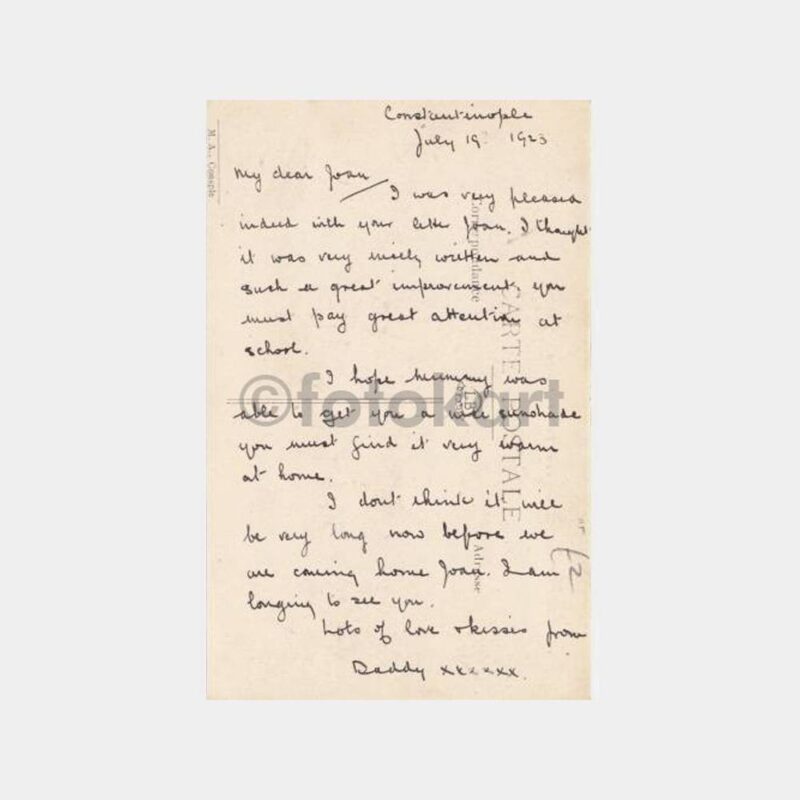 Constantinople
July 19. 1923
My dear Joan
I was very pleased
indeed with your letter Joan. I thought
it was very nicely written and
such a great improvement, you
must pay great attention at
school.
I hope Mummy was
able to get you a nice sunshade
you must find it very warm
at home.
I dont think it will
be very long now before we
are coming home Joan. I am
longing to see you.
Lots of love & kisses from
Daddy xxxxxx.
M. A., Conople
Correspondance
CARTE POSTALE
Adresse
©fotokart